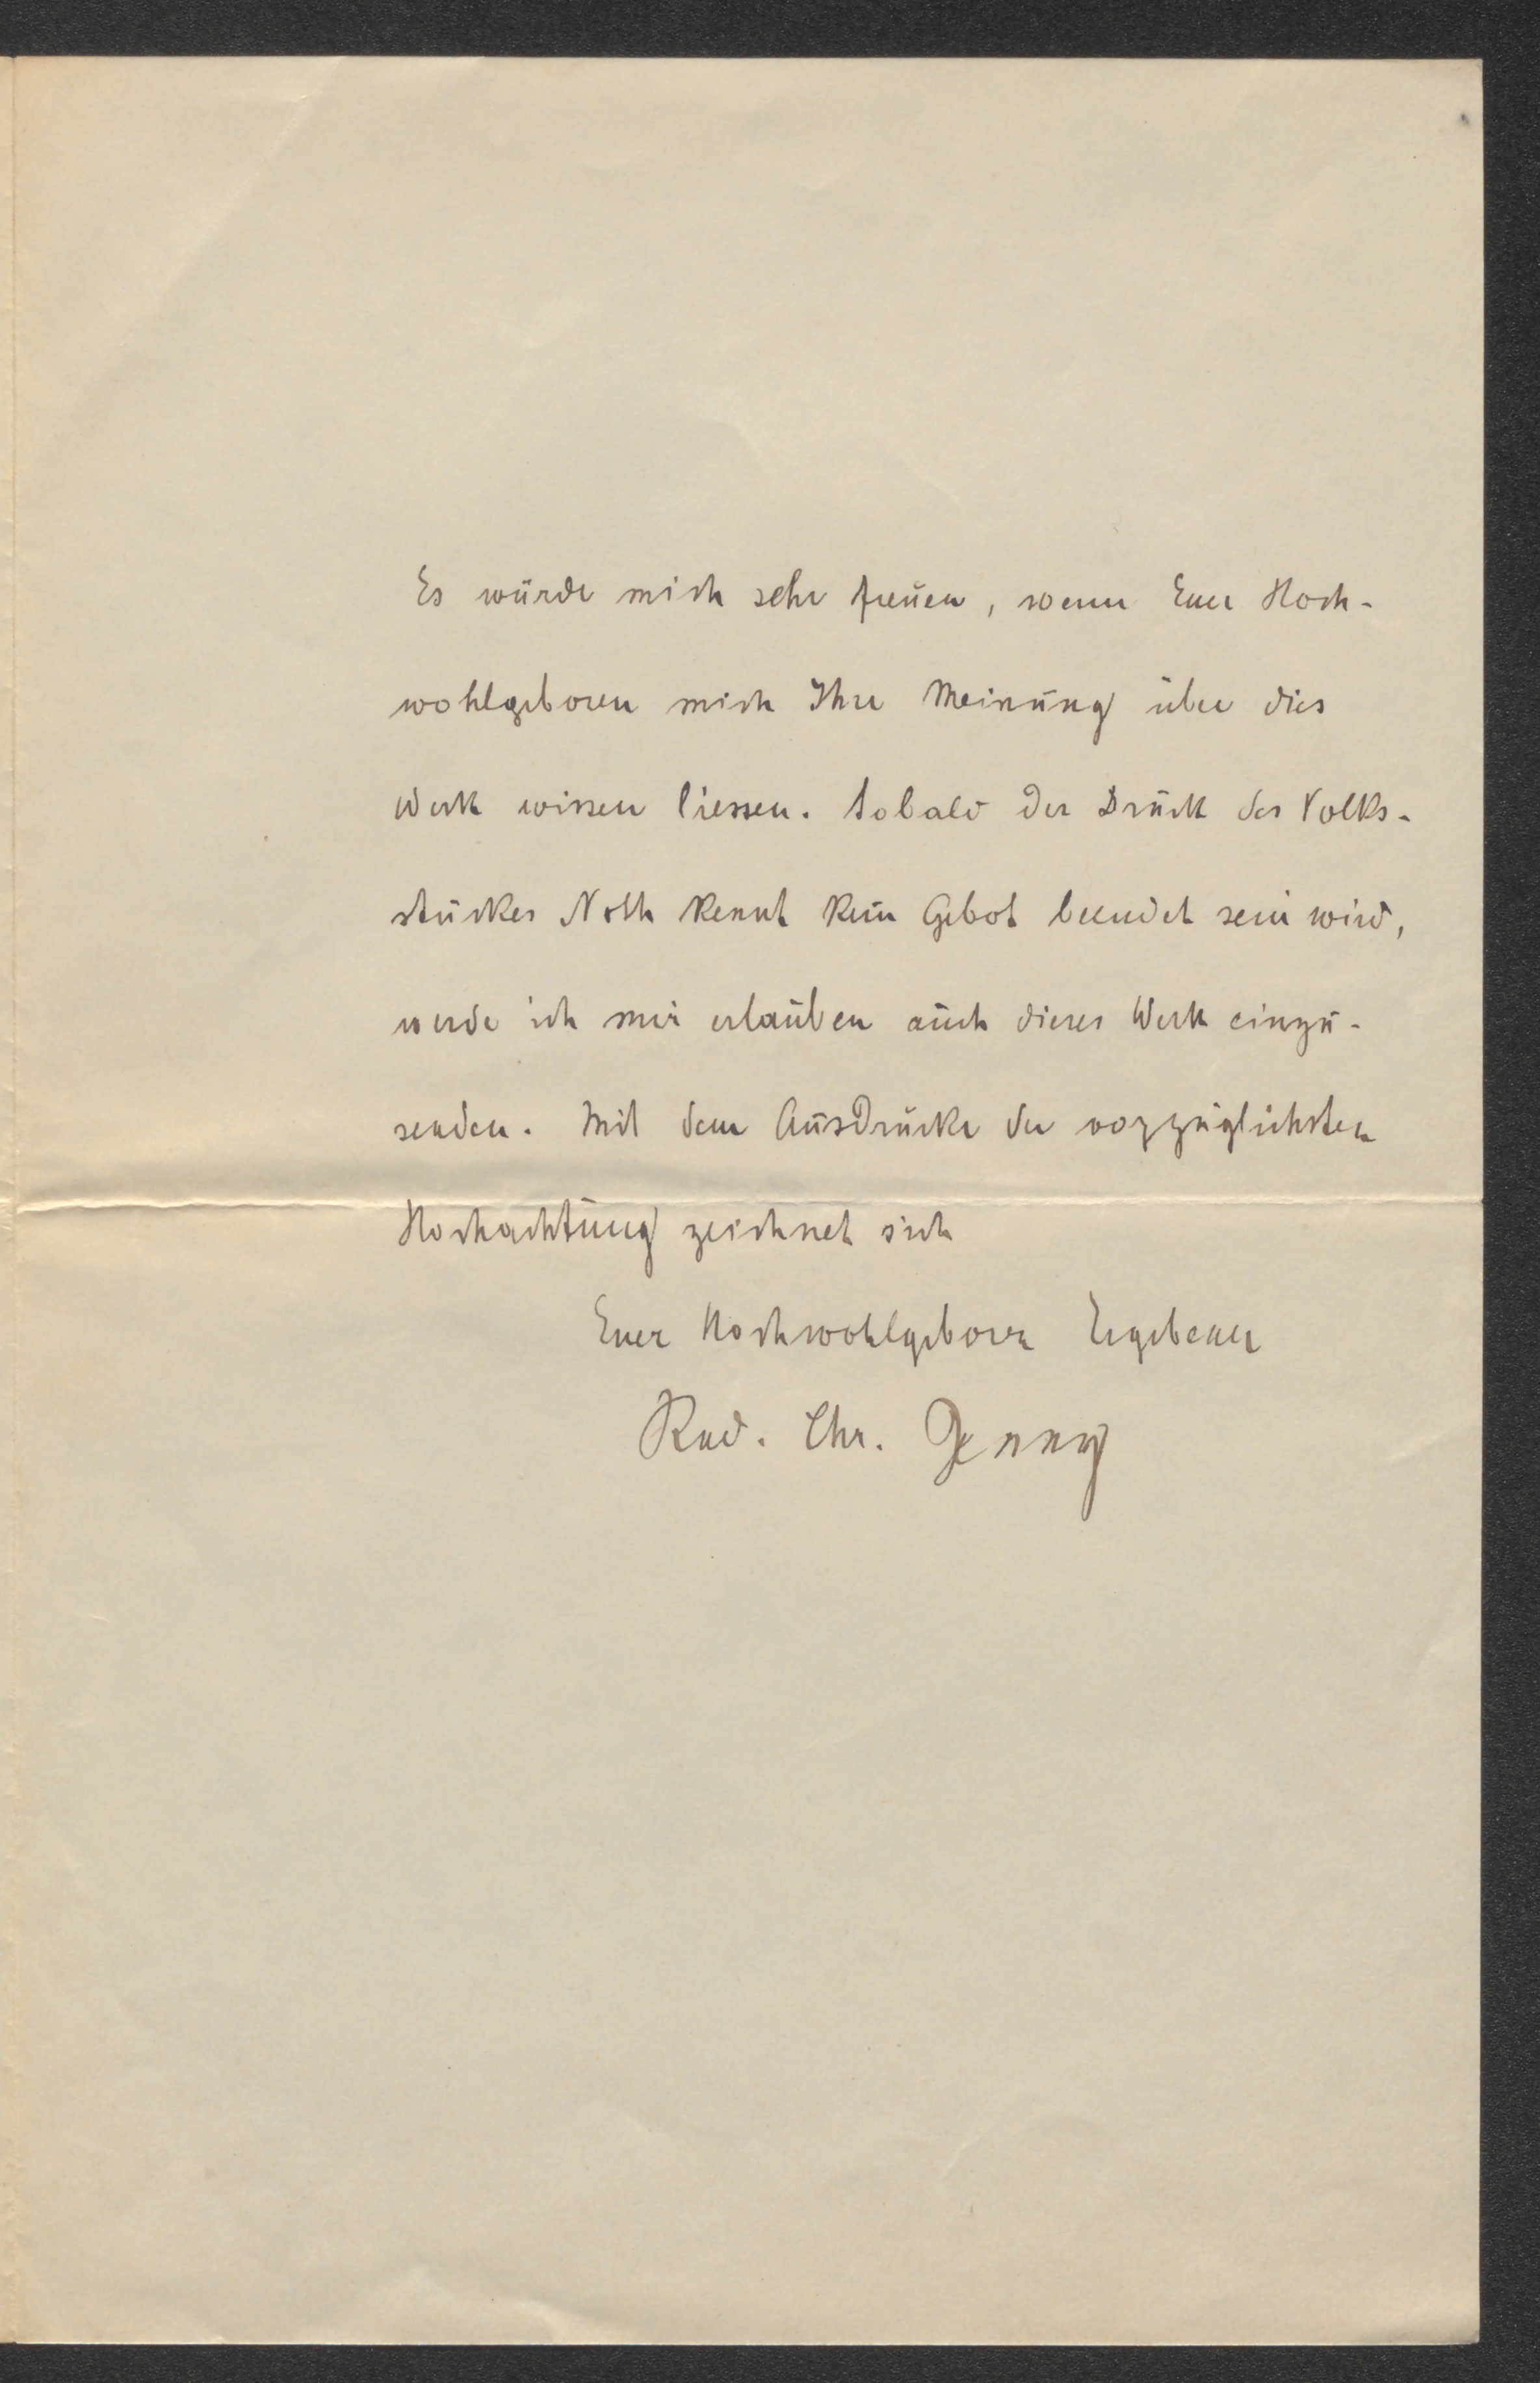 Es würde mich sehr freuen, wenn Euer Hoch-
wohlgeboren mich Ihre Meinung über dies
Werk wissen liessen. Sobald der Druck des Volks-
stückes Noth kennt kein Gebot beendet sein wird,
werde ich mir erlauben auch dieses Werk einzu-
senden. Mit dem Ausdrucke der vorzüglichsten
Hochachtung zeichnet sich
Euer Hochwohlgeboren Ergebener
Rud. Chr. Jenny